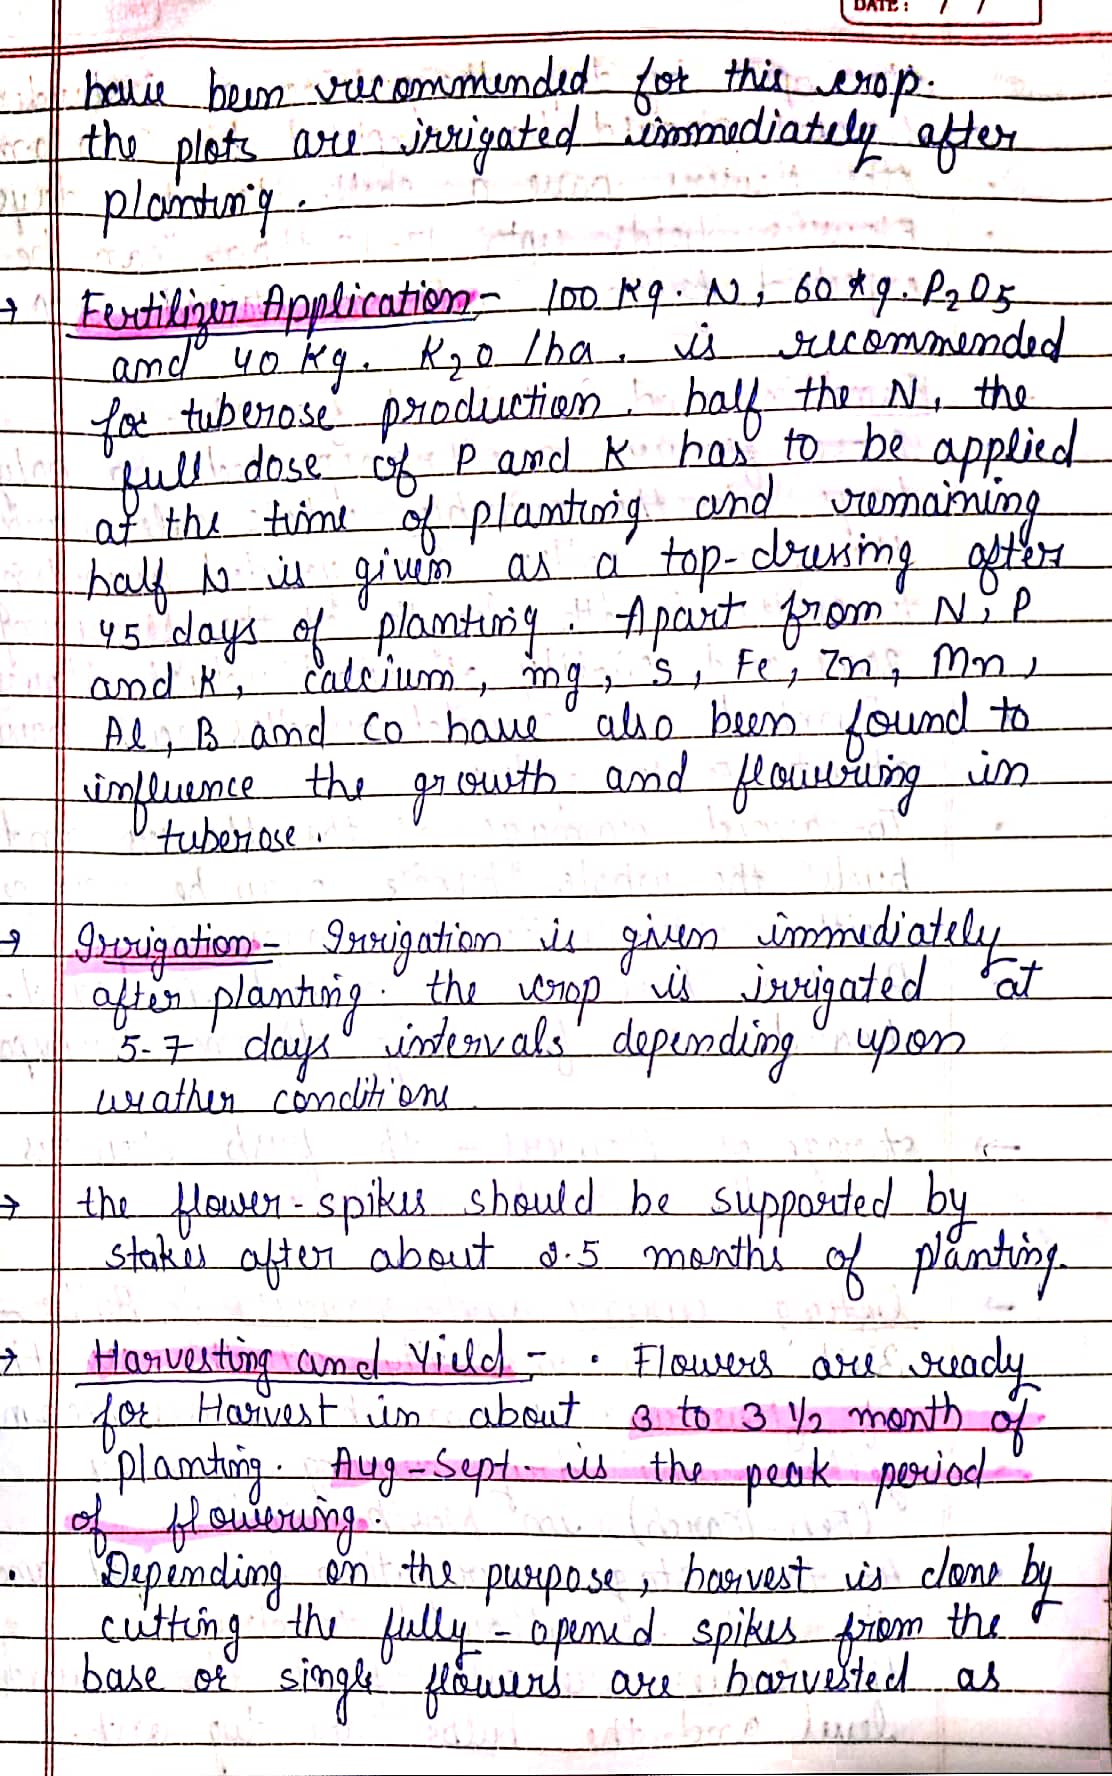 DATE: / /
have been recommended for this crop.
the plots are irrigated immediately after
planting.
→ Fertilizer Application - 100 Kg. N, 60 Kg. P2O5
and 40 Kg. K2O /ha, is recommended
for tuberose production. half the N, the
full dose of P and K has to be applied
at the time of planting and remaining
half N is given as a top-dressing after
45 days of planting. Apart from N, P
and K, calcium, mg, S, Fe, Zn, Mn,
Al, B and Co have also been found to
influence the growth and flowering in
tuberose.
→ Irrigation - Irrigation is given immediately
after planting. the crop is irrigated at
5-7 days intervals depending upon
weather conditions
→ the flower-spikes should be supported by
stakes after about 2.5 months of planting.
→ Harvesting and Yield - • Flowers are ready
for Harvest in about 3 to 3 1/2 month of
planting. Aug-Sept. is the peak period
of flowering.
• Depending on the purpose, harvest is done by
cutting the fully-opened spikes from the
base or single flowers are harvested as